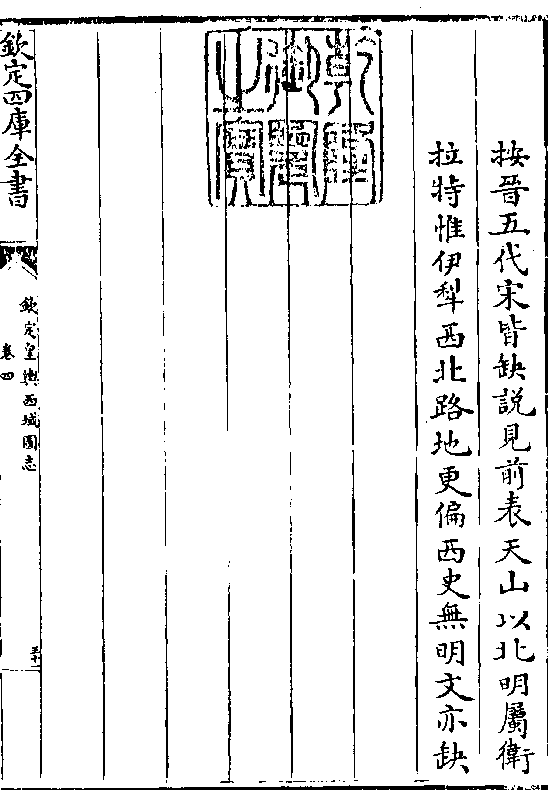 按晉五代宋皆缺說見前表天山以北明屬衛
拉特惟伊犁西北路地更偏西史無明文亦缺
乾隆御覽之寶
欽定四庫全書
欽定皇輿西域圖志
卷四